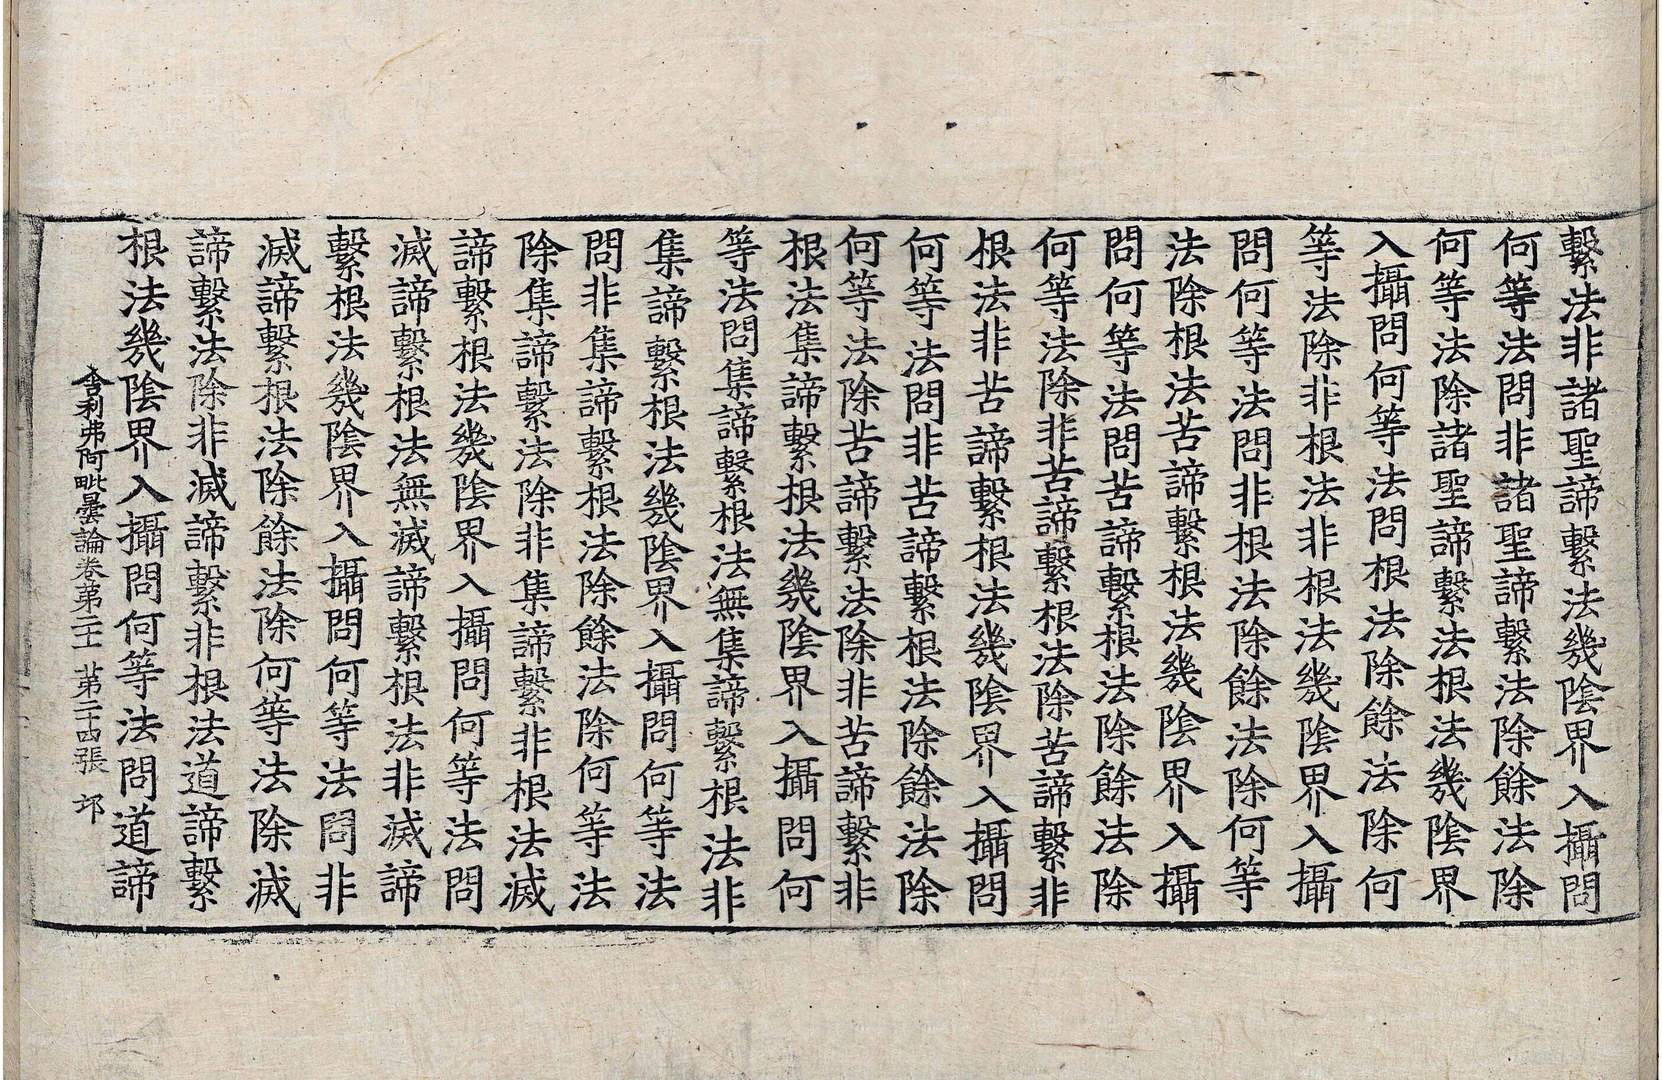 繫法非諸聖諦繫法幾陰界入攝問
何等法問非諸聖諦繫法除餘法除
何等法除諸聖諦繫法根法幾陰界
入攝問何等法問根法除餘法除何
等法除非根法非根法幾陰界入攝
問何等法問非根法除餘法除何等
法除根法苦諦繫根法幾陰界入攝
問何等法問苦諦繫根法除餘法除
何等法除非苦諦繫根法除苦諦繫非
根法非苦諦繫根法幾陰界入攝問
何等法問非苦諦繫根法除餘法除
何等法除苦諦繫法除非苦諦繫非
根法集諦繫根法幾陰界入攝問何
等法問集諦繫根法無集諦繫根法非
集諦繫根法幾陰界入攝問何等法
問非集諦繫根法除餘法除何等法
除集諦繫法除非集諦繫非根法滅
諦繫根法幾陰界入攝問何等法問
滅諦繫根法無滅諦繫根法非滅諦
繫根法幾陰界入攝問何等法問非
滅諦繫根法除餘法除何等法除滅
諦繫法除非滅諦繫非根法道諦繫
根法幾陰界入攝問何等法問道諦
舍利弗阿毗曇論卷第二十一 第二十四張 邙